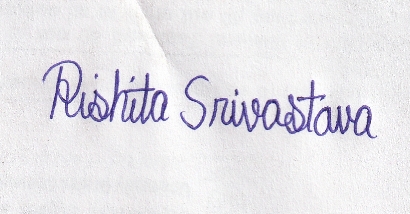 Rishita Srivastava